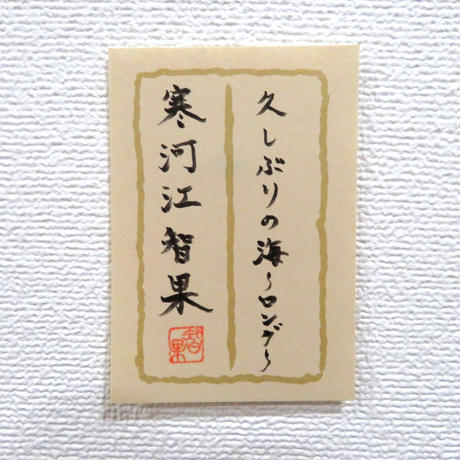 久しぶりの海〜ロング〜
寒河江智果
智果